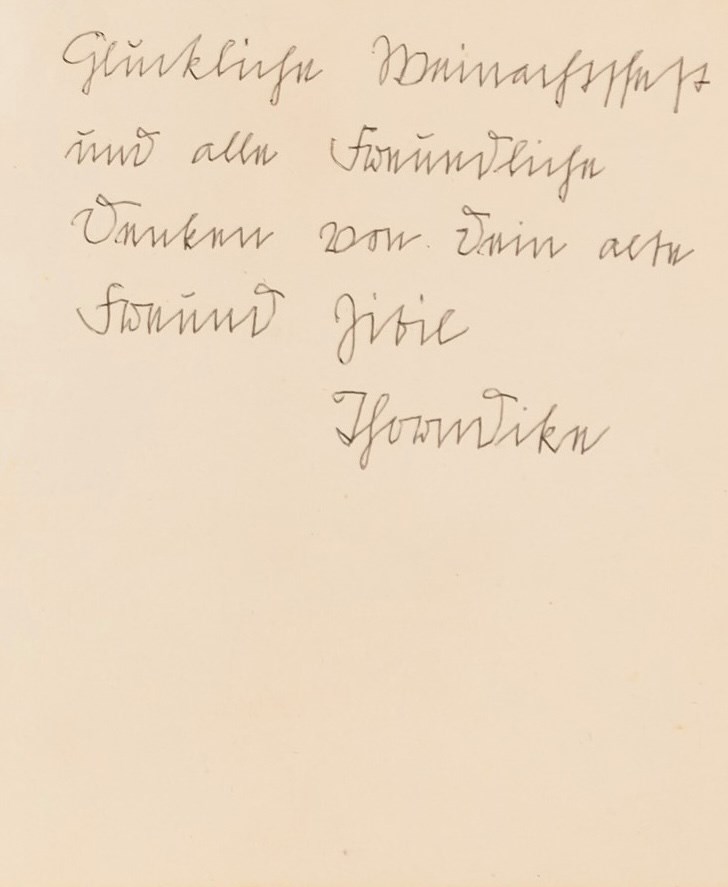 Gluckliche Weinachtsfest
und alle Freundliche
Denken von Dein alte
Freund Sibil
Thorndike